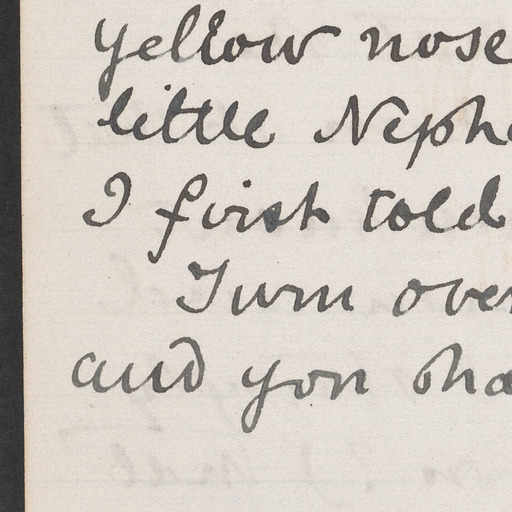 yellow nose
little Neph
I first told
Turn over
and you sha